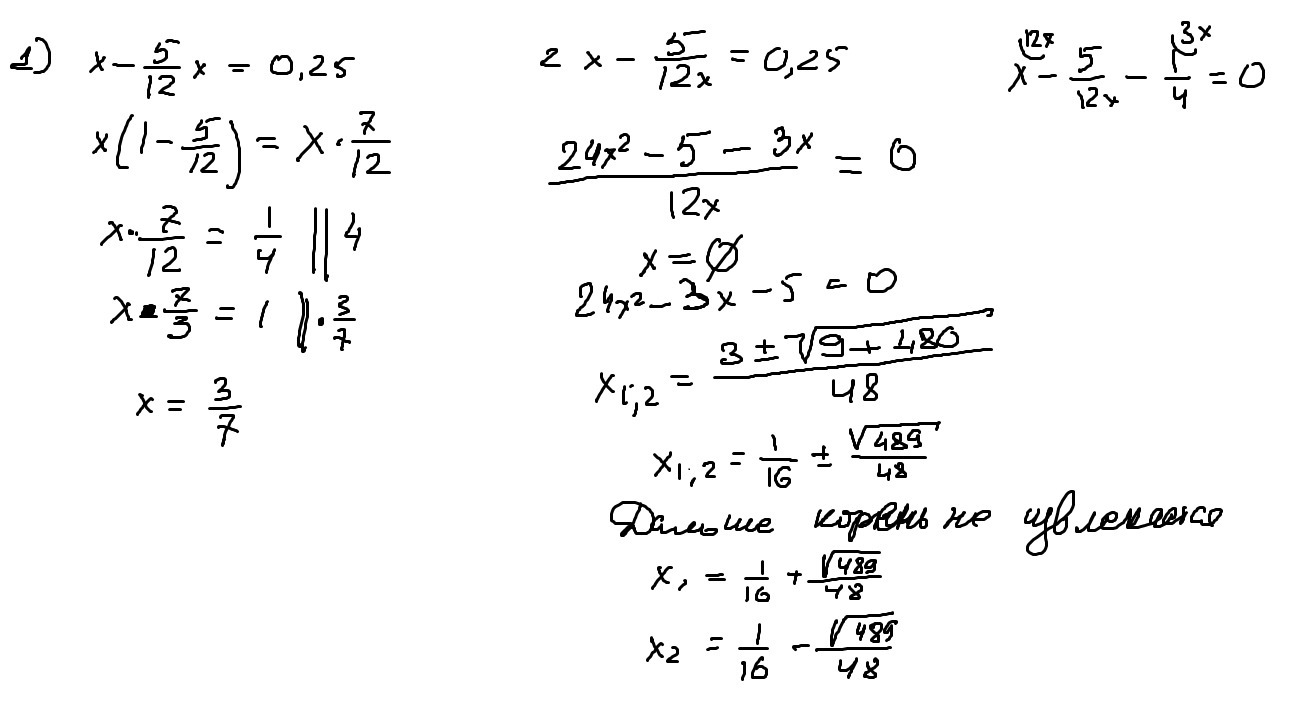 1) x - 5/12 x = 0,25
x(1 - 5/12) = x · 7/12
x · 7/12 = 1/4 || 4
x · 7/3 = 1 || · 3/7
x = 3/7
2 x - 5/12x = 0,25
(24x² - 5 - 3x)/12x = 0
x = ∅
24x² - 3x - 5 = 0
x1,2 = (3 ± √(9 + 480))/48
x1,2 = 1/16 ± √489/48
Дальше корень не извлекается
x1 = 1/16 + √489/48
x2 = 1/16 - √489/48
12x 3x
x - 5/12x - 1/4 = 0